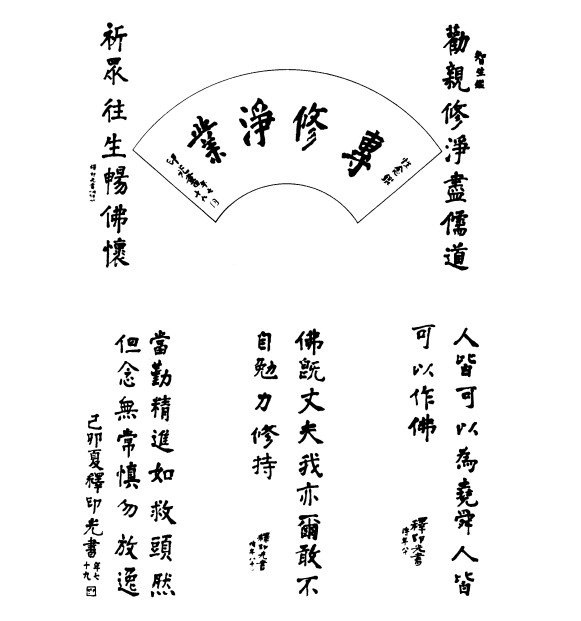 智生鑑
勸親修淨盡儒道
祈眾往生暢佛懷
專修淨業
印光書
人皆可以為堯舜人皆
可以作佛
釋印光書
佛既丈夫我亦爾敢不
自勉力修持
釋印光書
當勤精進如救頭然
但念無常慎勿放逸
己卯夏釋印光書
年七十九